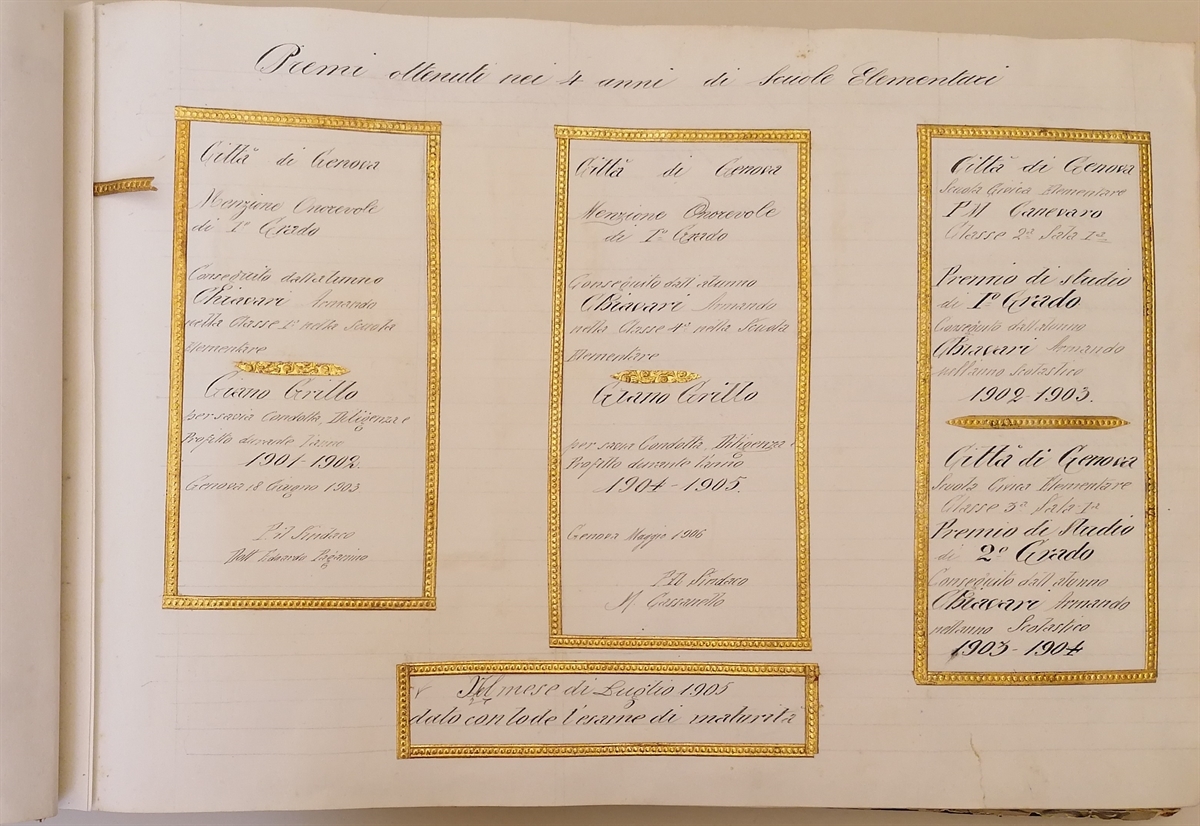 Premi ottenuti nei 4 anni di Scuole Elementari
Città di Genova
Menzione Onorevole
di 1º Grado
Conseguito dall'alunno
Chiavari Armando
nella Classe 1ª nella Scuola
Elementare
Giano Grillo
per savia Condotta, Diligenza e
Profitto durante l'anno
1901-1902.
Genova 18 Giugno 1903
P il Sindaco
Dott Edoardo Paganino
Città di Genova
Menzione Onorevole
di 1º Grado
Conseguito dall'alunno
Chiavari Armando
nella Classe 4ª nella Scuola
Elementare
Giano Grillo
per savia Condotta, Diligenza e
Profitto durante l'anno
1904-1905.
Genova Maggio 1906
P il Sindaco
M. Gassanello
Città di Genova
Scuola Civica Elementare
P M Canevaro
Classe 2ª Sala 1ª
Premio di studio
di 1º Grado
Conseguito dall'alunno
Chiavari Armando
nell'anno Scolastico
1902-1903.
Città di Genova
Scuola Civica Elementare
Classe 3ª Sala 1ª
Premio di Studio
di 2º Grado
Conseguito dall'alunno
Chiavari Armando
nell'anno Scolastico
1903-1904
Nel mese di Luglio 1905
dato con lode l'esame di maturità